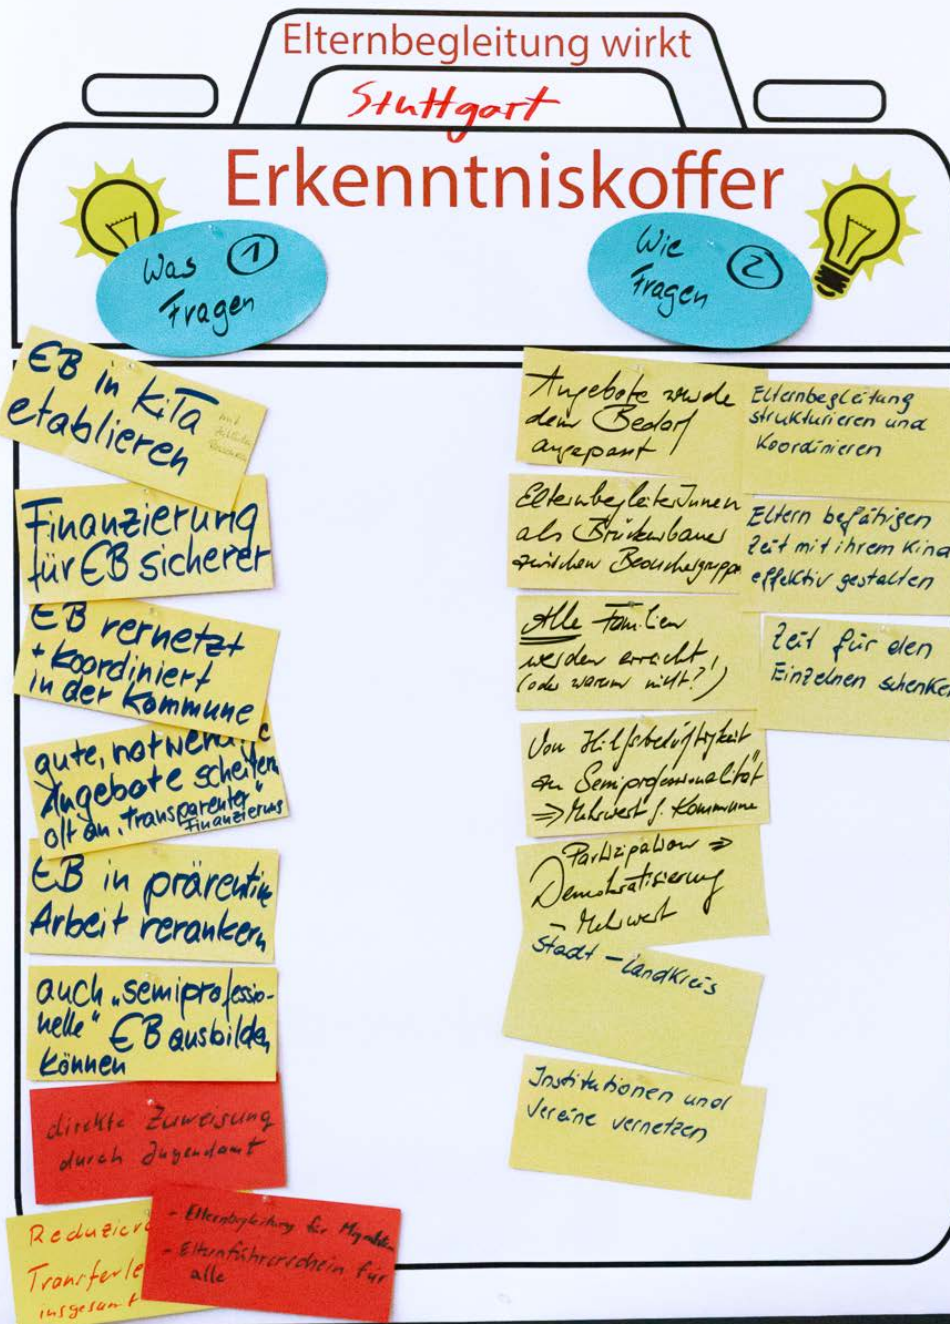 Elternbegleitung wirkt
Stuttgart
Erkenntniskoffer
Was ①
Fragen
EB in KiTa
etablieren
mit
Finanzierung
für EB sicherer
EB vernetzt
+ koordiniert
in der Kommune
gute, notwendige
Angebote scheitern
oft an „transparenter"
Finanzierung
EB in präventive
Arbeit verankern
auch „semiprofessio-
nelle" EB ausbilden
können
direkte Zuweisung
durch Jugendamt
Reduzier
Transferle
insgesamt
- Elternbegleitung für
- Elternführerschein für
alle
Wie ②
Fragen
Angebote
dem Bedarf
angepasst
ElternbegleiterInnen
als Brückenbauer
zwischen Besuchergruppe
Alle Familien
werden erreicht!
(oder warum nicht?!)
Von Hilfsbedürftigkeit
zu Semiprofessionalität
⇒ Mehrwert f. Kommune
Partizipation ⇒
Demokratisierung
- Mehrwert
Stadt - Landkreis
Institutionen und
Vereine vernetzen
Elternbegleitung
strukturieren und
koordinieren
Eltern befähigen
Zeit mit ihrem Kind
effektiv gestalten
Zeit für den
Einzelnen schenken